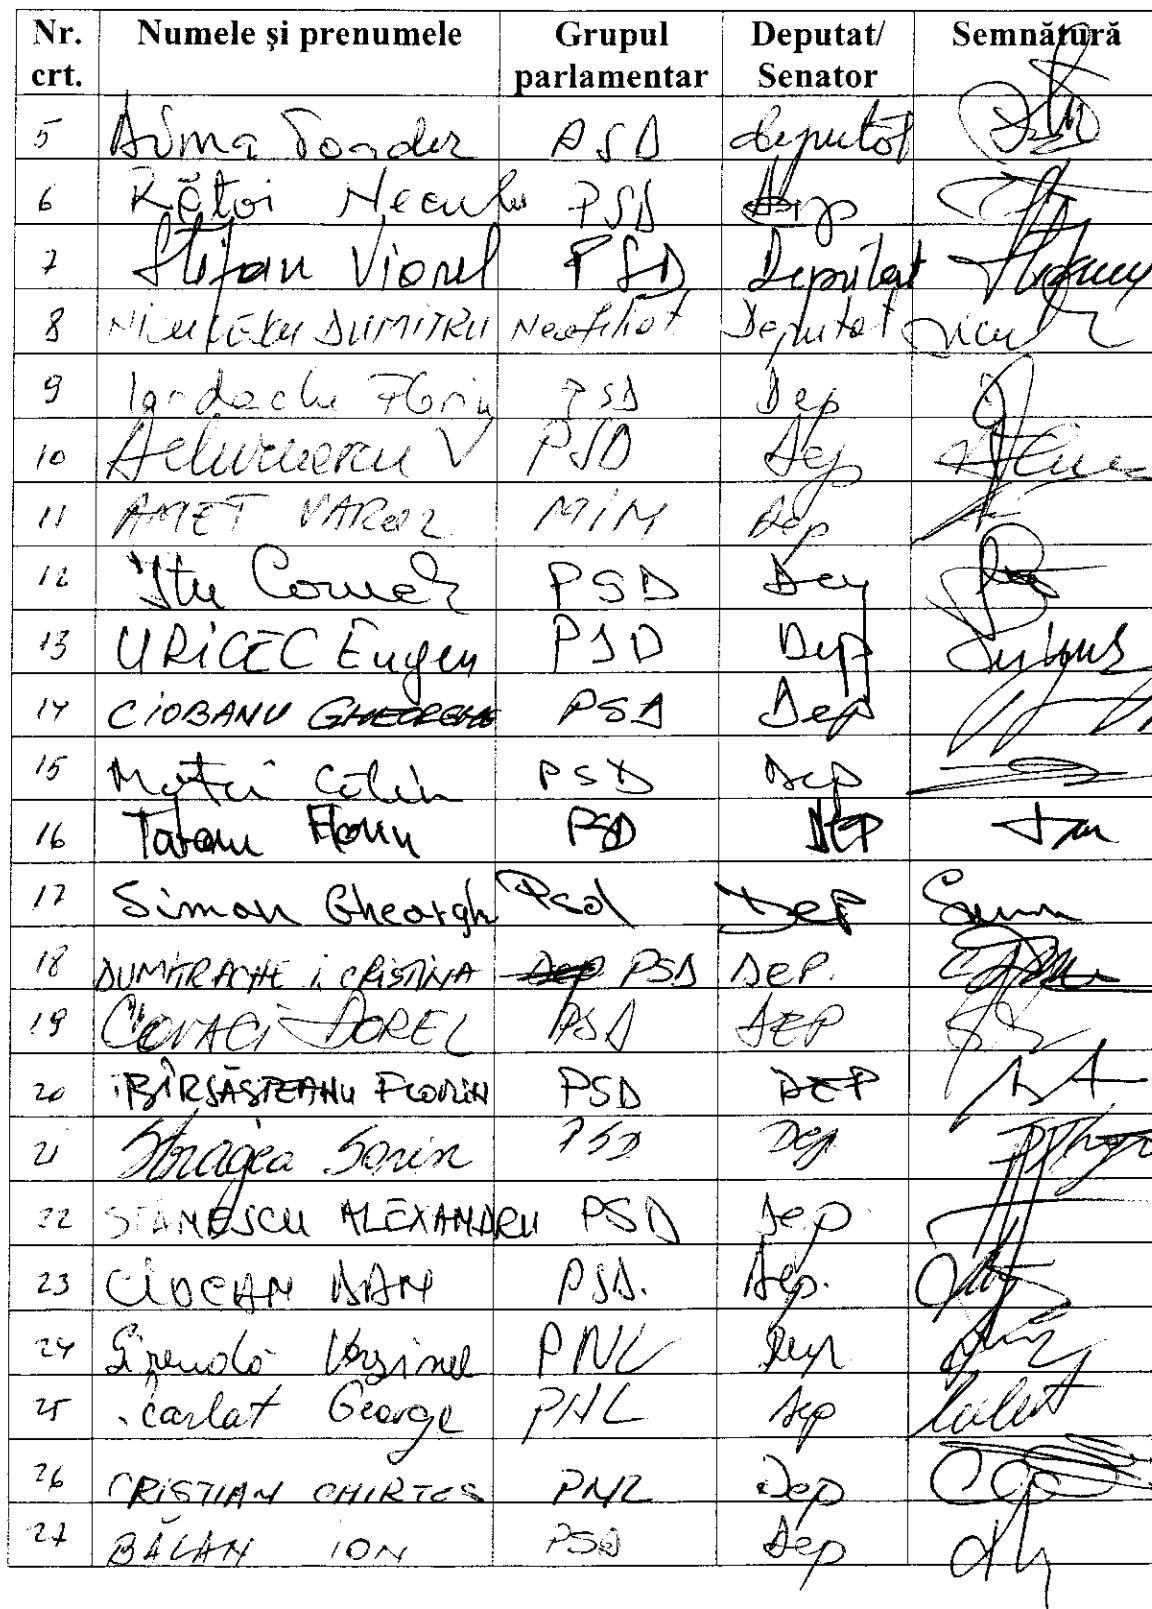 Nr. crt. Numele şi prenumele Grupul parlamentar Deputat/ Senator Semnătură
5 Toader PSD deputat
6 Rătoi Neculai PSD Dep
7 Ştefan Viorel PSD Deputat
8 NICULESCU DUMITRU Neafiliat Deputat
9 Iordache Florin PSD Dep
10 V PSD Dep
11 AMET VAROL MIN Dep
12 Itu Cornel PSD Dep
13 URICEC Eugen PSD Dep
14 CIOBANU GHEORGHE PSD Dep
15 Matei Călin PSD Dep
16 Tătaru Florin PSD DEP
17 Simon Gheorghe Psd DEP
18 DUMITRACHE I. CRISTINA Dep PSD DEP.
19 COVACI DOREL PSD DEP
20 BÎRSĂȘTEANU FLORIN PSD DEP
21 Stragea Sorin PSD Dep
22 STANESCU ALEXANDRU PSD Dep.
23 CIOCAN DAN PSD. Dep.
24 Gireadă Verginel PNL Dep
25 Scarlat George PNL Dep
26 CRISTIAN CHIRTES PNL Dep
27 BĂLAN ION PSD Dep